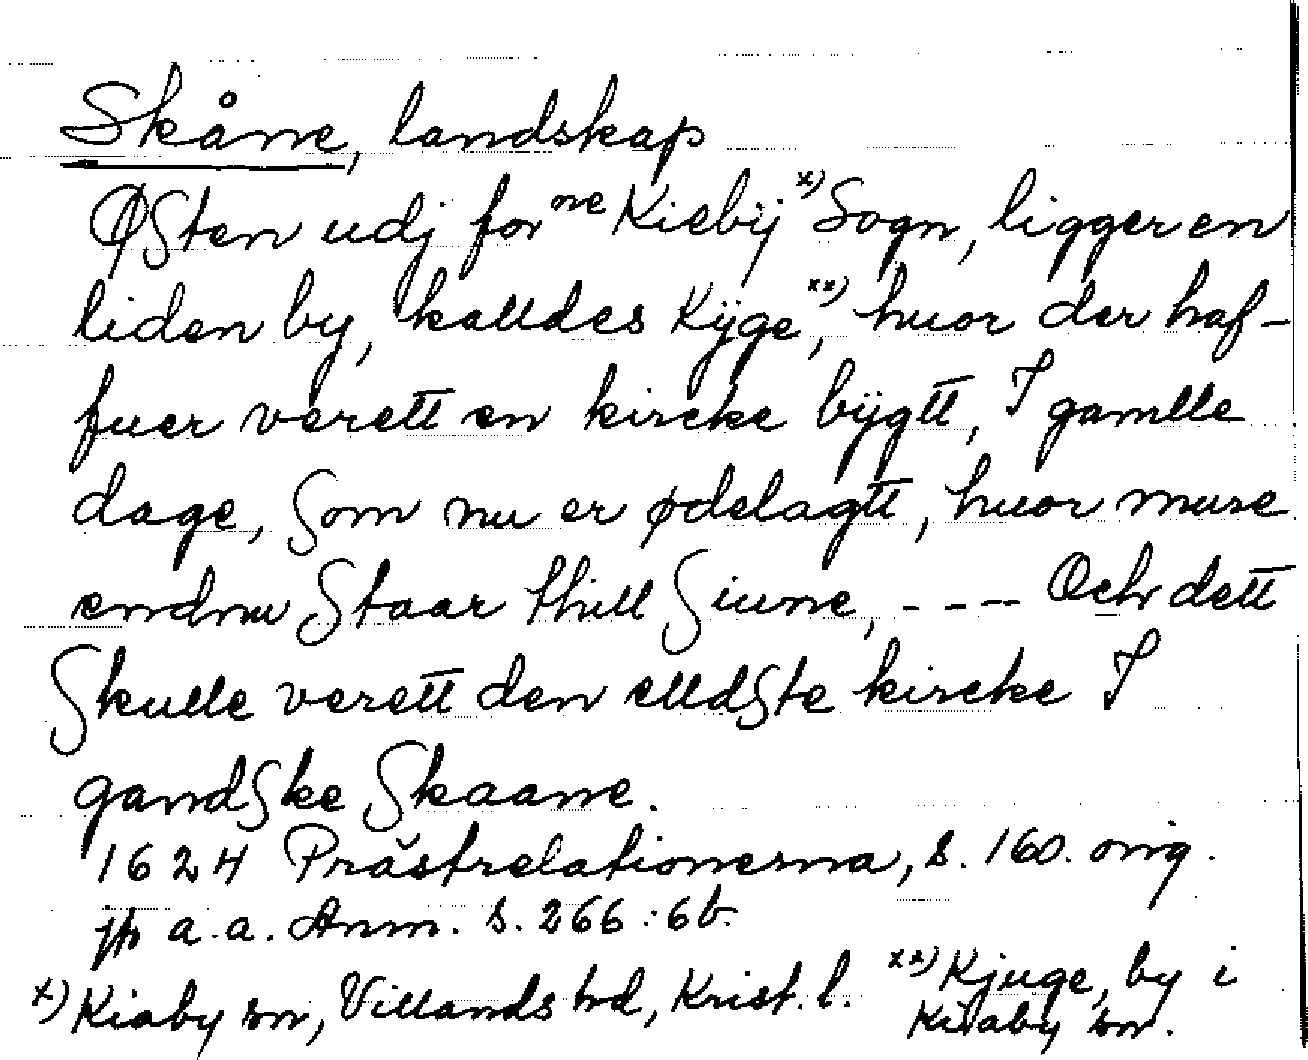 Skåne, landskap
Østen udj forne Kiebÿ x) Sogn, ligger en
liden by, kalldes Kÿge xx), huor der haf-
fuer verett en kircke bÿgtt, I gamlle
dage, Som nu er ødelagtt, huor mure
endnu Staar thill Siune, ---- Och dett
Skulle verett den elldSte kircke I
gandSke Skaane.
1624 Prästrelationerna, s. 160. orig.
jfr a.a. Anm. s. 266:6b.
x) Kiaby sn, Villands hd, Krist. l. xx) Kjuge, by i
Kiaby sn.